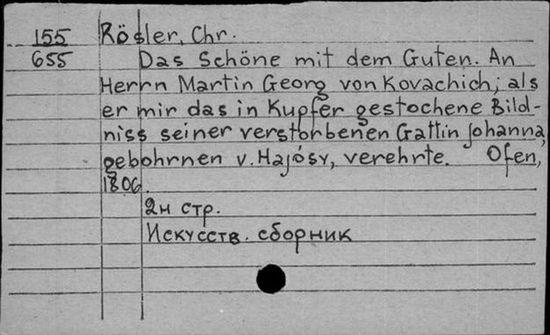 155
655
Rößler, Chr.
Das Schöne mit dem Guten. An
Herrn Martin Georg von Kovachich, als
er mir das in Kupfer gestochene Bild-
niss seiner verstorbenen Gattin Johanna,
gebohrnen v. Hajósy, verehrte. Ofen,
1806.
2н стр.
Искусств. сборник